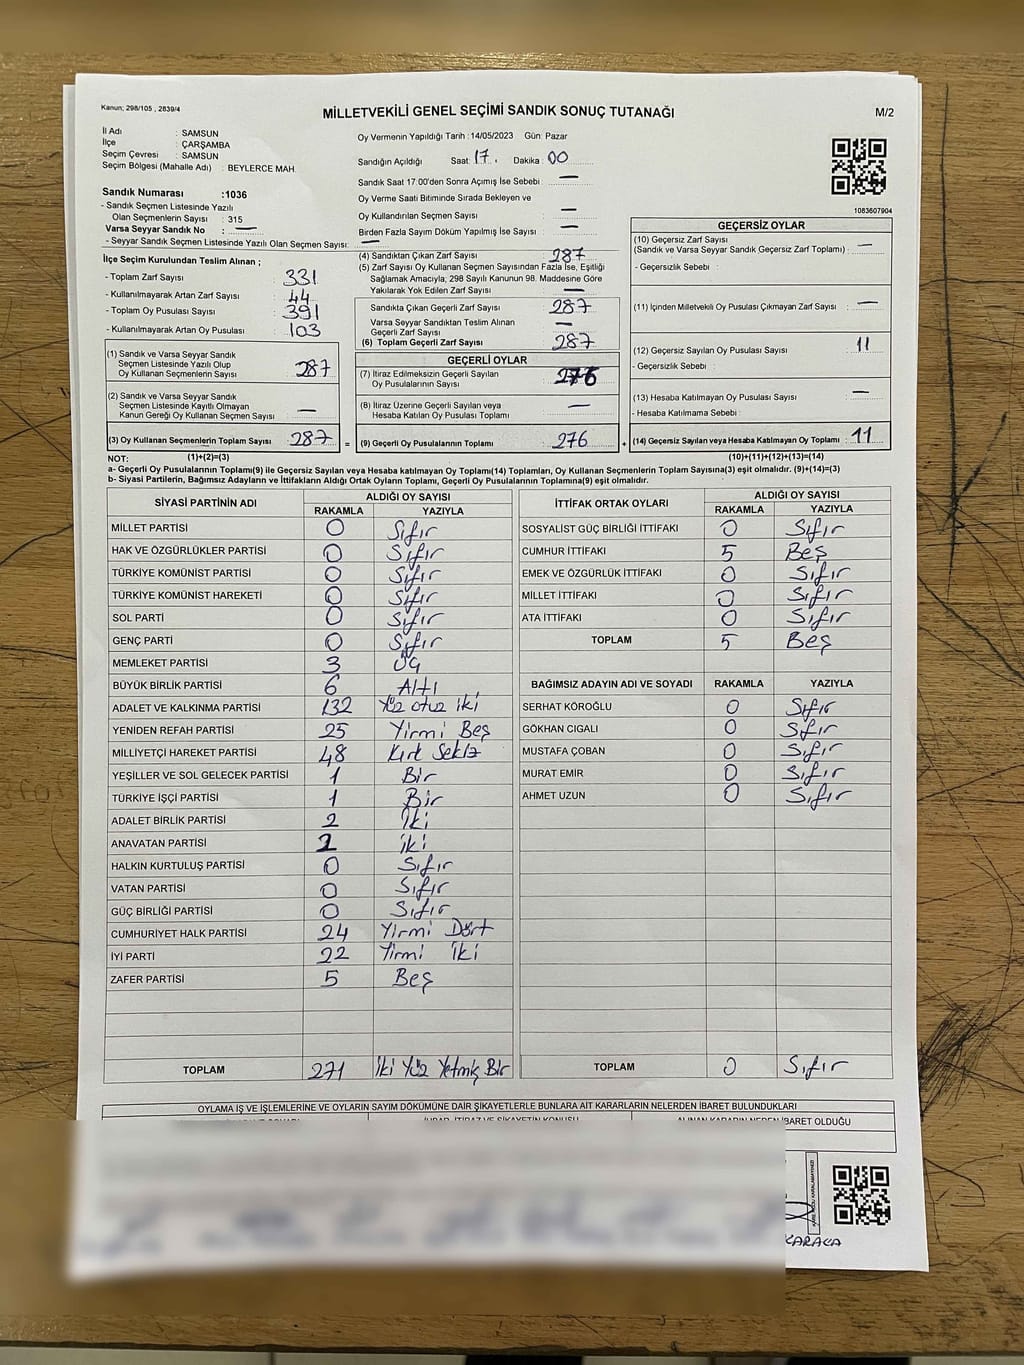 Kanun; 298/105 , 2839/4
MİLLETVEKİLİ GENEL SEÇİMİ SANDIK SONUÇ TUTANAĞI
M/2
İl Adı : SAMSUN
İlçe : ÇARŞAMBA
Seçim Çevresi : SAMSUN
Seçim Bölgesi (Mahalle Adı) : BEYLERCE MAH.
Sandık Numarası :1036
- Sandık Seçmen Listesinde Yazılı
Olan Seçmenlerin Sayısı : 315
Varsa Seyyar Sandık No : —
- Seyyar Sandık Seçmen Listesinde Yazılı Olan Seçmen Sayısı: —
Oy Vermenin Yapıldığı Tarih :14/05/2023 Gün: Pazar
Sandığın Açıldığı Saat: 17 . Dakika: 00
Sandık Saat 17:00'den Sonra Açımış İse Sebebi : —
Oy Verme Saati Bitiminde Sırada Bekleyen ve
Oy Kullandırılan Seçmen Sayısı : —
Birden Fazla Sayım Döküm Yapılmış İse Sayısı : —
1083607904
İlçe Seçim Kurulundan Teslim Alınan ;
- Toplam Zarf Sayısı : 331
- Kullanılmayarak Artan Zarf Sayısı : 44
- Toplam Oy Pusulası Sayısı : 391
- Kullanılmayarak Artan Oy Pusulası : 103
(1) Sandık ve Varsa Seyyar Sandık
Seçmen Listesinde Yazılı Olup
Oy Kullanan Seçmenlerin Sayısı : 287
(2) Sandık ve Varsa Seyyar Sandık
Seçmen Listesinde Kayıtlı Olmayan
Kanun Gereği Oy Kullanan Seçmen Sayısı : —
(3) Oy Kullanan Seçmenlerin Toplam Sayısı : 287 =
(4) Sandıktan Çıkan Zarf Sayısı : 287
(5) Zarf Sayısı Oy Kullanan Seçmen Sayısından Fazla İse, Eşitliği
Sağlamak Amacıyla; 298 Sayılı Kanunun 98. Maddesine Göre
Yakılarak Yok Edilen Zarf Sayısı : —
Sandıkta Çıkan Geçerli Zarf Sayısı : 287
Varsa Seyyar Sandıktan Teslim Alınan
Geçerli Zarf Sayısı : —
(6) Toplam Geçerli Zarf Sayısı : 287
GEÇERLİ OYLAR
(7) İtiraz Edilmeksizin Geçerli Sayılan
Oy Pusulalarının Sayısı : 276
(8) İtiraz Üzerine Geçerli Sayılan veya
Hesaba Katılan Oy Pusulası Toplamı : —
(9) Geçerli Oy Pusulalarının Toplamı : 276 +
GEÇERSİZ OYLAR
(10) Geçersiz Zarf Sayısı
(Sandık ve Varsa Seyyar Sandık Geçersiz Zarf Toplamı) : —
- Geçersizlik Sebebi :
(11) İçinden Milletvekili Oy Pusulası Çıkmayan Zarf Sayısı : —
(12) Geçersiz Sayılan Oy Pusulası Sayısı : 11
- Geçersizlik Sebebi :
(13) Hesaba Katılmayan Oy Pusulası Sayısı : —
- Hesaba Katılmama Sebebi :
(14) Geçersiz Sayılan veya Hesaba Katılmayan Oy Toplamı : 11
NOT: (1)+(2)=(3) (10)+(11)+(12)+(13)=(14)
a- Geçerli Oy Pusulalarının Toplamı(9) ile Geçersiz Sayılan veya Hesaba katılmayan Oy Toplamı(14) Toplamları, Oy Kullanan Seçmenlerin Toplam Sayısına(3) eşit olmalıdır. (9)+(14)=(3)
b- Siyasi Partilerin, Bağımsız Adayların ve İttifakların Aldığı Ortak Oyların Toplamı, Geçerli Oy Pusulalarının Toplamına(9) eşit olmalıdır.
SİYASİ PARTİNİN ADI ALDIĞI OY SAYISI
RAKAMLA YAZIYLA
MİLLET PARTİSİ 0 Sıfır
HAK VE ÖZGÜRLÜKLER PARTİSİ 0 Sıfır
TÜRKİYE KOMÜNİST PARTİSİ 0 Sıfır
TÜRKİYE KOMÜNİST HAREKETİ 0 Sıfır
SOL PARTİ 0 Sıfır
GENÇ PARTİ 0 Sıfır
MEMLEKET PARTİSİ 3 Üç
BÜYÜK BİRLİK PARTİSİ 6 Altı
ADALET VE KALKINMA PARTİSİ 132 Yüz otuz iki
YENİDEN REFAH PARTİSİ 25 Yirmi Beş
MİLLİYETÇİ HAREKET PARTİSİ 48 Kırk Sekiz
YEŞİLLER VE SOL GELECEK PARTİSİ 1 Bir
TÜRKİYE İŞÇİ PARTİSİ 1 Bir
ADALET BİRLİK PARTİSİ 2 İki
ANAVATAN PARTİSİ 2 iki
HALKIN KURTULUŞ PARTİSİ 0 Sıfır
VATAN PARTİSİ 0 Sıfır
GÜÇ BİRLİĞİ PARTİSİ 0 Sıfır
CUMHURİYET HALK PARTİSİ 24 Yirmi Dört
İYİ PARTİ 22 Yirmi iki
ZAFER PARTİSİ 5 Beş
TOPLAM 271 İki Yüz Yetmiş Bir
İTTİFAK ORTAK OYLARI ALDIĞI OY SAYISI
RAKAMLA YAZIYLA
SOSYALİST GÜÇ BİRLİĞİ İTTİFAKI 0 Sıfır
CUMHUR İTTİFAKI 5 Beş
EMEK VE ÖZGÜRLÜK İTTİFAKI 0 Sıfır
MİLLET İTTİFAKI 0 Sıfır
ATA İTTİFAKI 0 Sıfır
TOPLAM 5 Beş
BAĞIMSIZ ADAYIN ADI VE SOYADI RAKAMLA YAZIYLA
SERHAT KÖROĞLU 0 Sıfır
GÖKHAN CIGALI 0 Sıfır
MUSTAFA ÇOBAN 0 Sıfır
MURAT EMİR 0 Sıfır
AHMET UZUN 0 Sıfır
TOPLAM 0 Sıfır
OYLAMA İŞ VE İŞLEMLERİNE VE OYLARIN SAYIM DÖKÜMÜNE DAİR ŞİKAYETLERLE BUNLARA AİT KARARLARIN NELERDEN İBARET BULUNDUKLARI
ALINAN KARARIN NEDEN İBARET OLDUĞU
KARACA